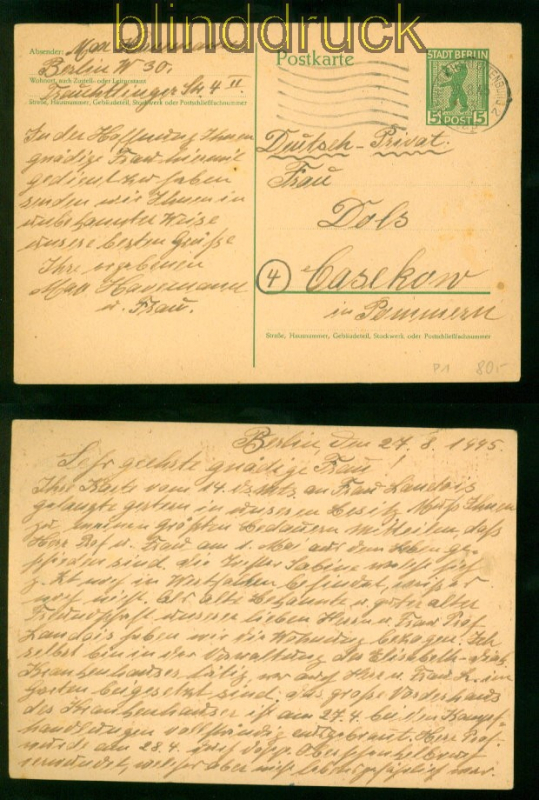 blinddruck
Absender: Max Hannemann
Berlin W 30.
Wohnort, auch Zustell- oder Leitpostamt
Str. 4 II
Straße, Hausnummer, Gebäudeteil, Stockwerk oder Postschließfachnummer
Postkarte
STADT BERLIN
5 POST 5
In der Hoffnung Ihnen
gnädige Frau hiermit
gedient zu haben
senden wir Ihnen in
unbekannter Weise
unsere besten Grüße
Ihre ergebenen
Max Hannemann
u. Frau.
Deutsch-Privat.
Frau
Dols
4 Casekow
in Pommern
Straße, Hausnummer, Gebäudeteil, Stockwerk oder Postschließfachnummer
P1 80,-
Berlin, den 27.8.1945
Sehr geehrte gnädige Frau!
Ihre Karte vom 14. ds. Mts. an Frau Landois
gelangte gestern in unseren Besitz. Muss Ihnen
zu meinem größten Bedauern mitteilen, daß
Herr Prof u. Frau am 1. Mai aus dem Leben ge-
schieden sind. die Tochter Sabine welche sich
z. Zt. noch in Westfalen befindet, weiß es
noch nicht. Als alte Bekannte u. guter alter
Freundschaft unserer lieben Herrn u. Frau Prof
Landois haben wir die Wohnung bezogen. Ich
selbst bin in der Verwaltung des Elisabeth-
Krankenhauses tätig, wo auch Herr u. Frau L. im
Garten beigesetzt sind. das große Vorderhaus
des Krankenhauses ist am 27.4. bei den Kampf-
handlungen vollständig ausgebrannt. Herr Prof.
wurde am 28.4. durch Oberschenkelbruch
verwundet, welcher aber nicht lebensgefährlich war.